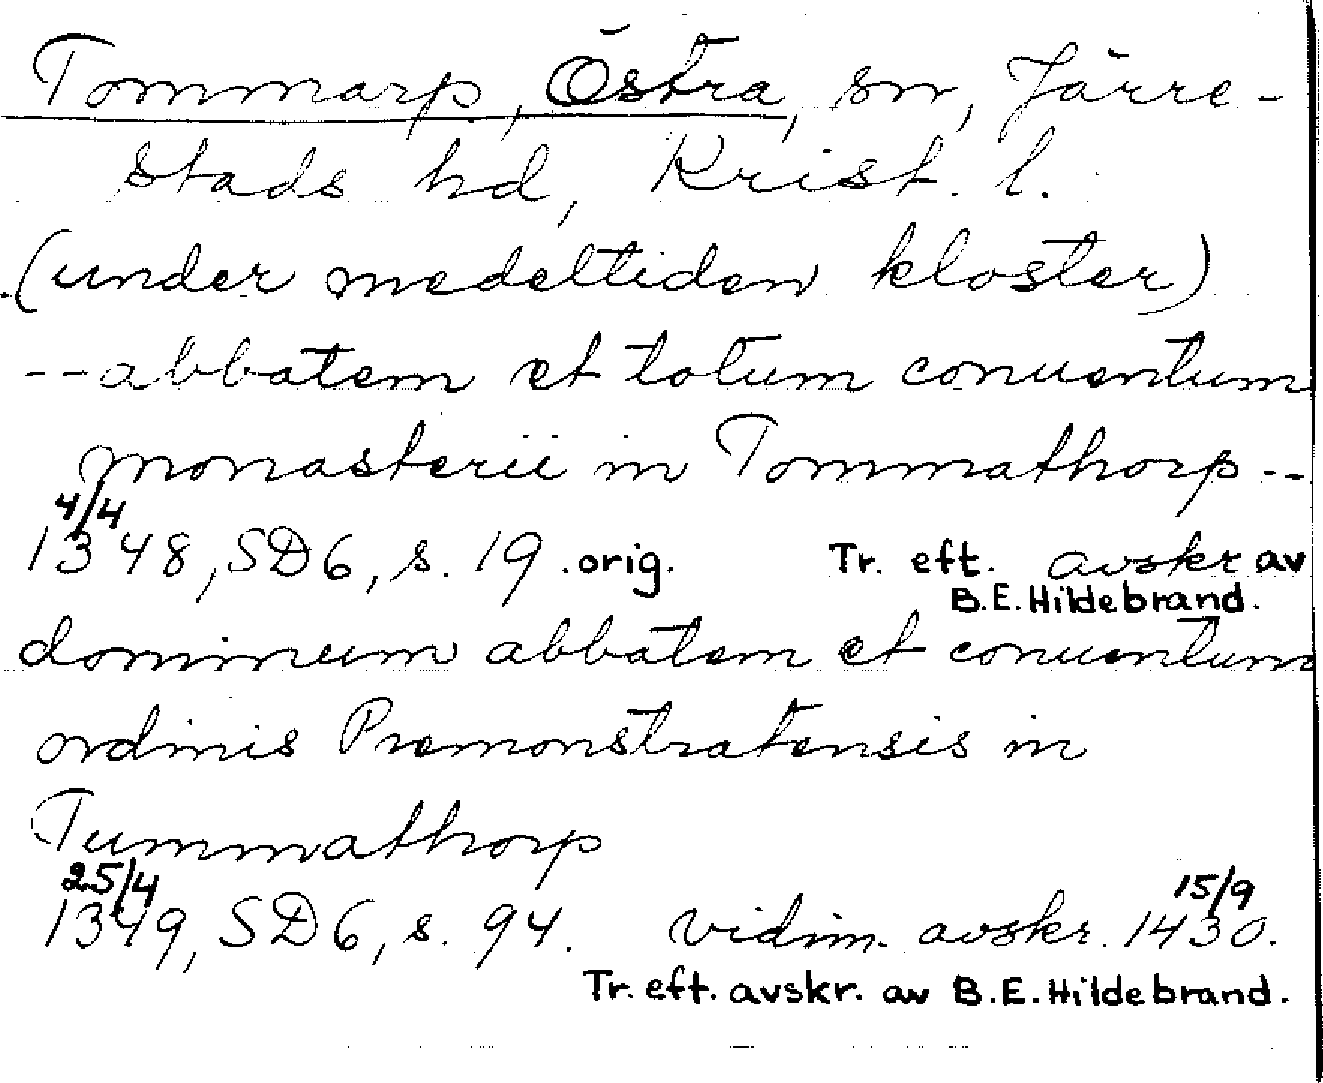 Tommarp, Östra, sn, Järre-
stads hd, Krist. l.
(under medeltiden kloster)
--abbatem et totum conuentum
monasterii in Tommathorp--
4/4
1348, SD6, s. 19. orig. Tr. eft. avskr av
B.E. Hildebrand.
dominum abbatem et conuentum
ordinis Premonstratensis in
Tummathorp
25/4 15/9
1349, SD6, s. 94. vidim. avskr. 1430.
Tr. eft. avskr. av B.E. Hildebrand.